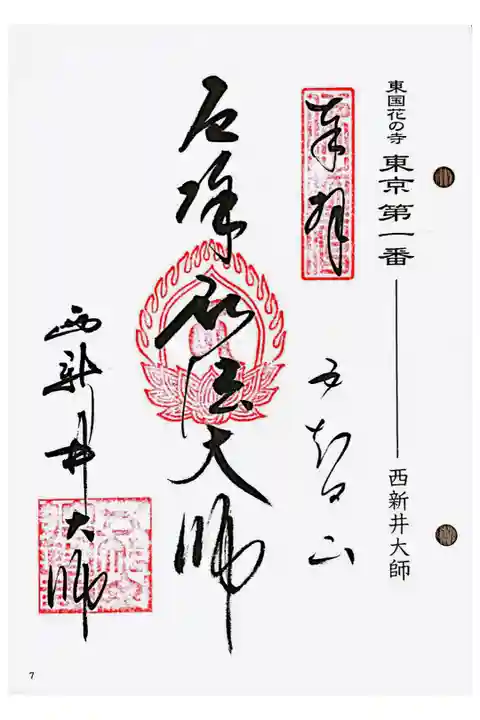 東国花の寺 東京 第一番 西新井大師
奉拝
五智山
厄除弘法大師
西新井大師
7